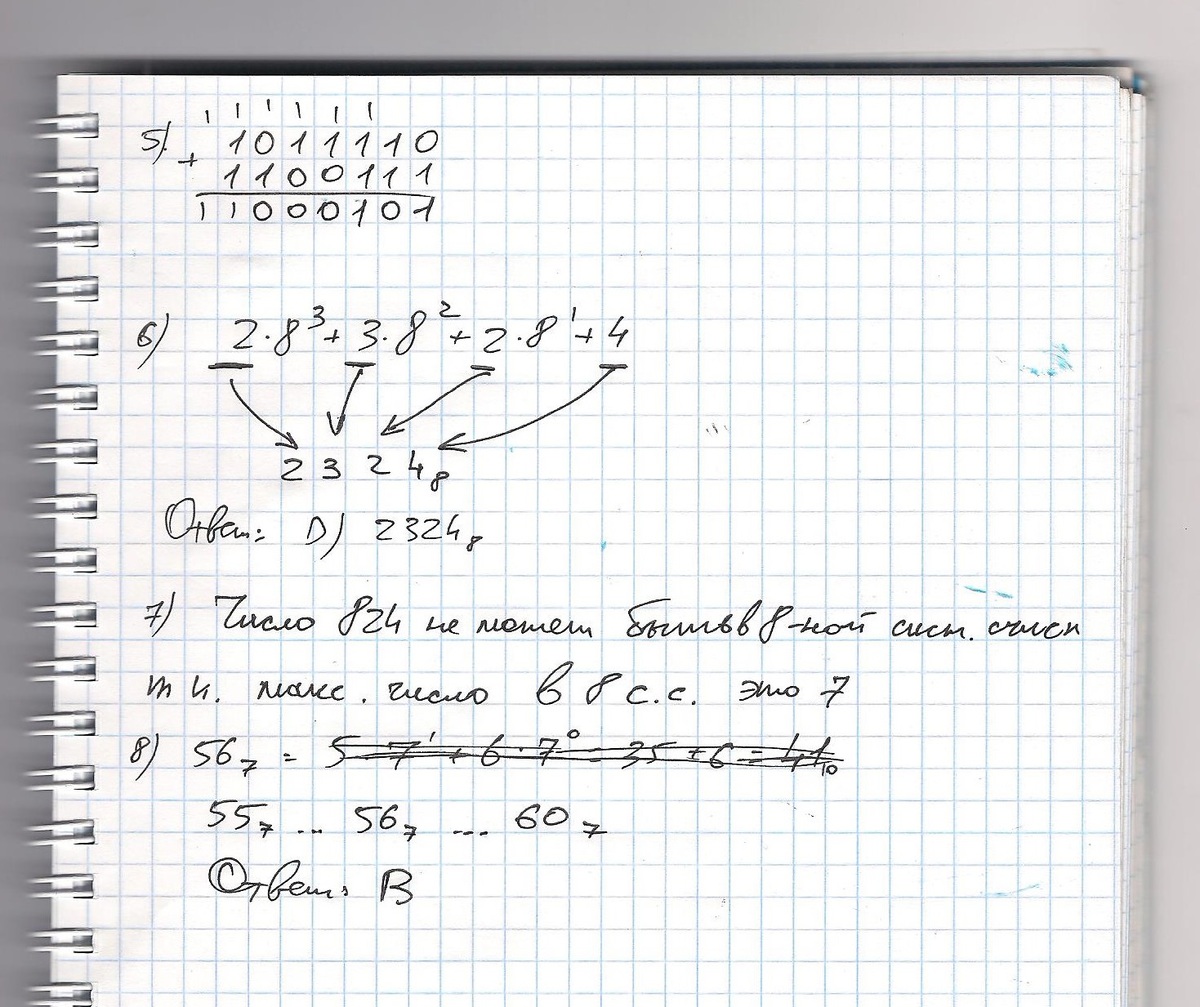 1 1 1 1 1 1
5) 1011110
+ 1100111
11000101
6) 2·8³ + 3·8² + 2·8¹ + 4
2 3 2 4₈
Ответ: D) 2324₈
7) Число 824 не может быть в 8-ной сист. счисл
т к. макс. число в 8 с.с. это 7
8) 56₇ = 5·7¹ + 6·7⁰ = 35 + 6 = 41₁₀
55₇ ... 56₇ ... 60₇
Ответ: B